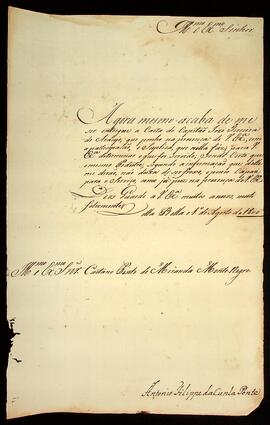 Illmo. e Exmo. Senhor
Agora mesmo acaba de me
ser entregue a Carta do Capitão José Ferreira
de Araujo, que ponho na prezença de V. Exa., com
que nella
Exa. determinar o que for Servido, Sendo Certo que
o mesmo segundo a informação que delle
me deraõ, não deixar de ser
para o Serviço, como já na prezença de V. Exa.
Deos Guarde a V. Exa. muitos annos, muito
Bella 1º. de Agosto de
Illmo. e Exmo. Snr. Caetano Pinto de Miranda Monte Negro
Antonio Filippe da Cunha Ponte